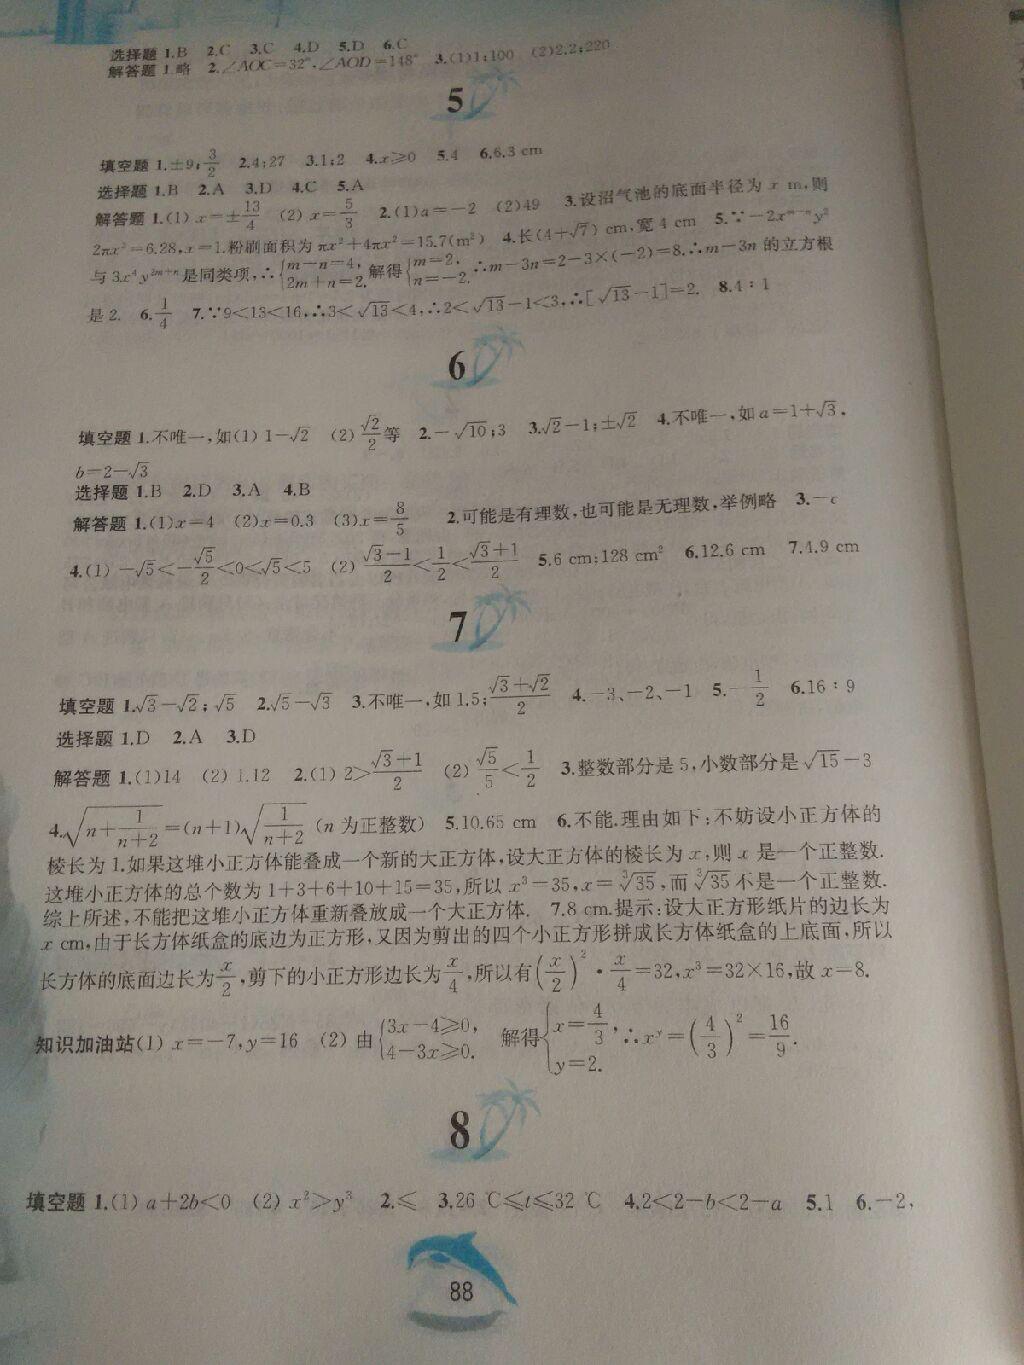 选择题 1.B 2.C 3.C 4.D 5.D 6.C
解答题 1.略 2.∠AOC=32°,∠AOD=148° 3.(1)1;100 (2)2.2;220
5
填空题 1.±9;3/2 2.4;27 3.1;2 4.x≥0 5.4 6.6.3 cm
选择题 1.B 2.A 3.D 4.C 5.A
解答题 1.(1) x=±13/4 (2) x=5/3 2.(1)a=-2 (2)49 3.设沼气池的底面半径为 x m,则
2πx²=6.28,x=1.粉刷面积为 πx²+4πx²=15.7(m²) 4.长(4+√7) cm,宽 4 cm 5.∵-2x^(m-n)y²
与 3x⁴y^(2m+n)是同类项,∴{m-n=4, 2m+n=2. 解得{m=2, n=-2. ∴m-3n=2-3×(-2)=8.∴m-3n 的立方根
是 2. 6.1/4 7.∵9<13<16,∴3<√13<4,∴2<√13-1<3,∴[√13-1]=2. 8.4∶1
6
填空题 1.不唯一,如(1) 1-√2 (2) √2/2等 2.-√10;3 3.√2-1;±√2 4.不唯一,如 a=1+√3,
b=2-√3
选择题 1.B 2.D 3.A 4.B
解答题 1.(1)x=4 (2)x=0.3 (3)x=8/5 2.可能是有理数,也可能是无理数,举例略 3.-c
4.(1) -√5<-√5/2<0<√5<5 (2) (√3-1)/2<1/2<(√3+1)/2 5.6 cm;128 cm² 6.12.6 cm 7.4.9 cm
7
填空题 1.√3-√2;√5 2.√5-√3 3.不唯一,如 1.5;(√3+√2)/2 4.-3、-2、-1 5.-1/2 6.16∶9
选择题 1.D 2.A 3.D
解答题 1.(1)14 (2) 1.12 2.(1) 2>(√3+1)/2 (2) √5/5<1/2 3.整数部分是 5,小数部分是√15-3
4.√(n+1/(n+2))=(n+1)√(1/(n+2)) (n 为正整数) 5.10.65 cm 6.不能.理由如下:不妨设小正方体的
棱长为 1.如果这堆小正方体能叠成一个新的大正方体,设大正方体的棱长为 x,则 x 是一个正整数.
这堆小正方体的总个数为 1+3+6+10+15=35,所以 x³=35,x=∛35,而∛35不是一个正整数.
综上所述,不能把这堆小正方体重新叠放成一个大正方体. 7.8 cm.提示:设大正方形纸片的边长为
x cm,由于长方体纸盒的底边为正方形,又因为剪出的四个小正方形拼成长方体纸盒的上底面,所以
长方体的底面边长为x/2,剪下的小正方形边长为x/4,所以有(x/2)²·x/4=32,x³=32×16,故 x=8.
知识加油站(1) x=-7,y=16 (2) 由{3x-4≥0, 4-3x≥0. 解得{x=4/3, y=2. ∴xʸ=(4/3)²=16/9.
8
填空题 1.(1) a+2b<0 (2) x²>y³ 2.≤ 3.26 ℃≤t≤32 ℃ 4.2<2-b<2-a 5.1 6.-2,
88